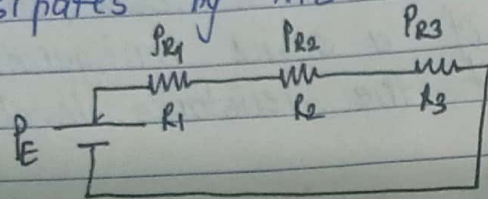 by
PR1 PR2 PR3
R1 R2 R3
PE